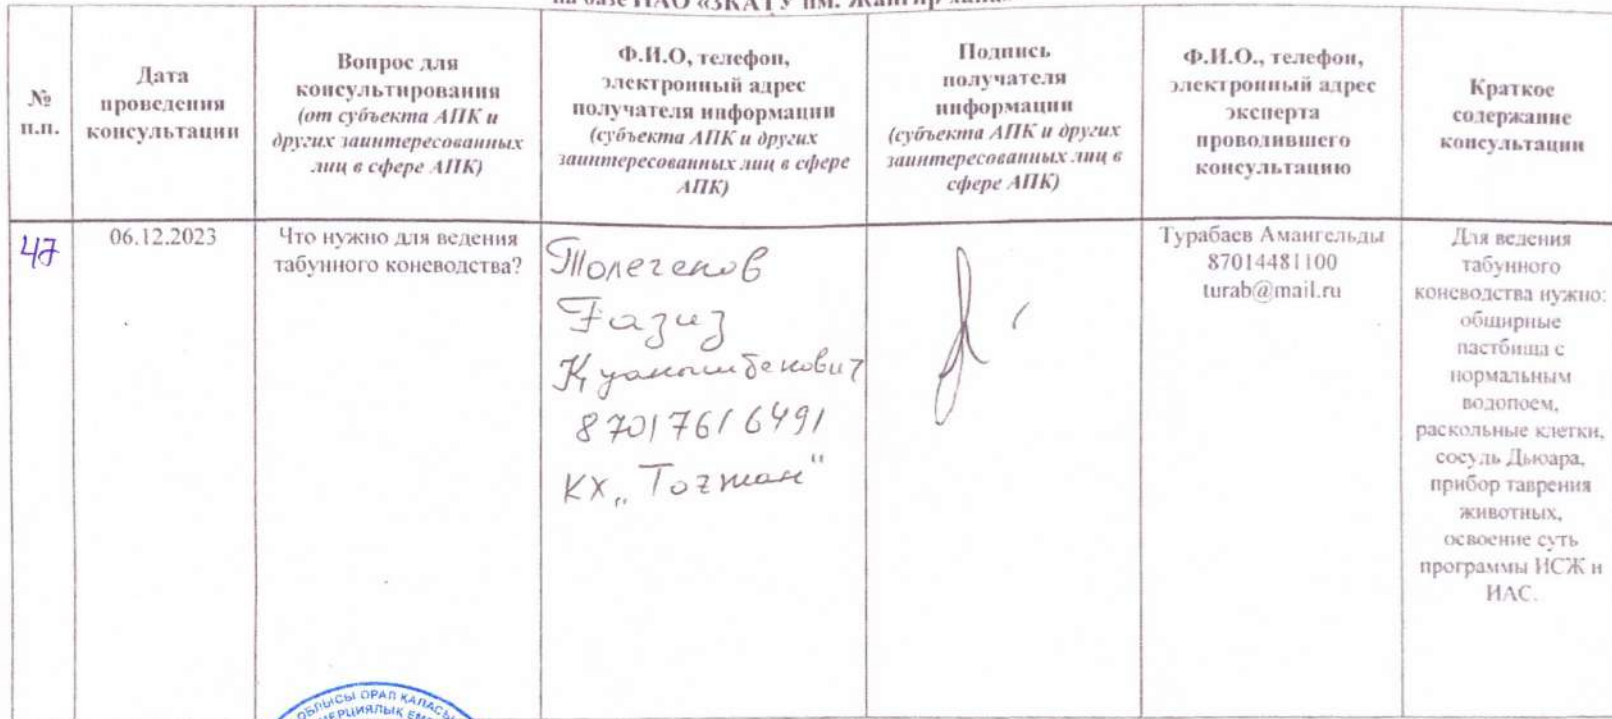 на базе НАО «ЗКАТУ им. Жангир хана»
№
п.п.
Дата
проведения
консультации
Вопрос для
консультирования
(от субъекта АПК и
других заинтересованных
лиц в сфере АПК)
Ф.И.О, телефон,
электронный адрес
получателя информации
(субъекта АПК и других
заинтересованных лиц в сфере
АПК)
Подпись
получателя
информации
(субъекта АПК и других
заинтересованных лиц в
сфере АПК)
Ф.И.О., телефон,
электронный адрес
эксперта
проводившего
консультацию
Краткое
содержание
консультации
47
06.12.2023
Что нужно для ведения
табунного коневодства?
Толегенов
Ғазиз
Қуанышбекович
87017616491
КХ „Тоғжан"
Турабаев Амангельды
87014481100
turab@mail.ru
Для ведения
табунного
коневодства нужно:
общирные
пастбища с
нормальным
водопоем,
раскольные клетки,
сосудь Дьюара,
прибор таврения
животных,
освоение суть
программы ИСЖ и
ИАС.
ОБЛЫСЫ ОРАЛ ҚАЛАСЫ